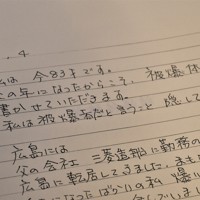 .4
私は 今83才です。
この年になったからこそ、被爆体
書かせていただきます。
私は被爆者だと言うこと 隠して
広島には
父の会社 三菱造船に勤務の
広島に転居してきました。まもな
になったばかりの私